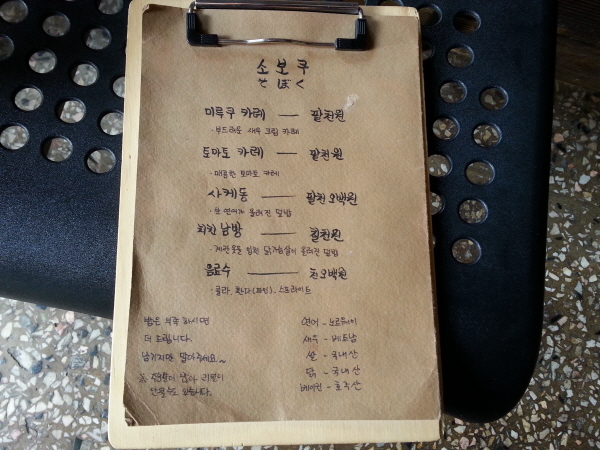 소보쿠
そぼく
미루쿠 카레 — 팔천원
· 부드러운 새우 크림 카레
토마토 카레 — 팔천원
· 매콤한 토마토 카레
사케동 — 팔천 오백원
· 생 연어가 올려진 덮밥
치킨 남방 — 칠천원
· 계란옷을 입힌 닭가슴살이 올려진 덮밥
음료수 — 천오백원
· 콜라, 환타(파인), 스프라이트
밥은 부족하시면
더 드립니다.
남기지만 말아주세요~
연어 - 노르웨이
새우 - 베트남
쌀 - 국내산
닭 - 국내산
베이컨 - 호주산